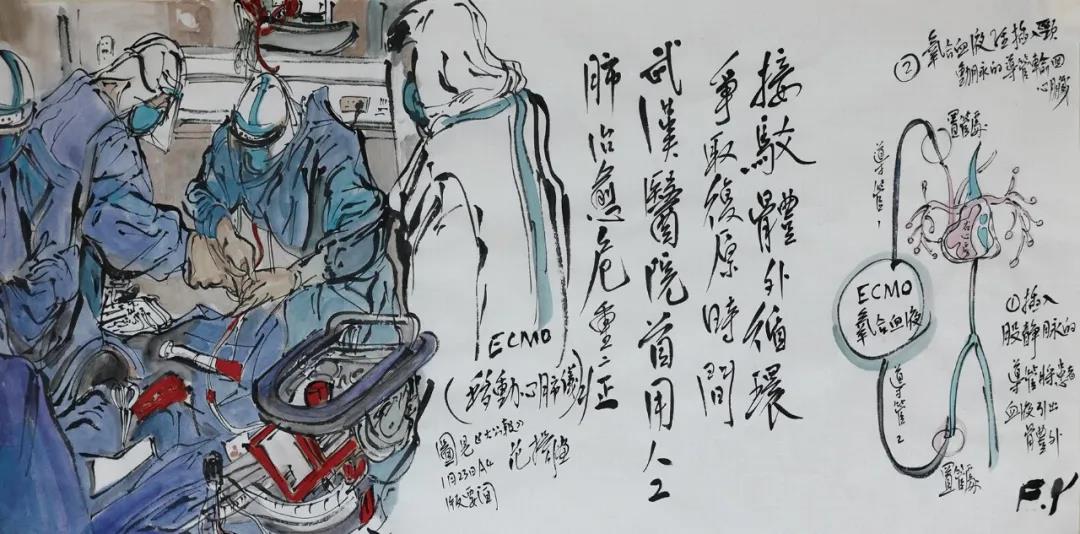 ② 氧合血液經插入頸
動脈的導管輸回
心臟
置管處
導管1
ECMO
氧合血液
導管2
置管處
① 插入
股靜脈的
導管將患者
血液引出
體外
F.Y
接駁體外循環
爭取復原時間
武漢醫院首用人工
肺治愈危重症
ECMO
(移動心肺儀)
圖見《大公報》
1月23日A4
版要聞